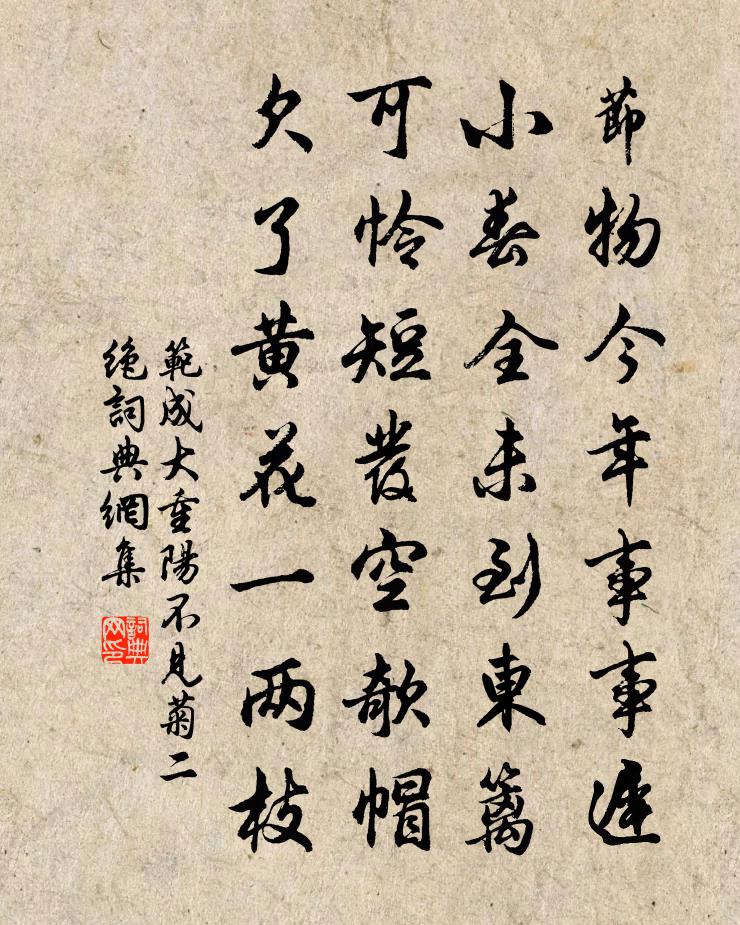 節物今年事事遲
小春全未到東籬
可怜短發空欹帽
欠了黃花一兩枝
範成大重陽不見菊二
絶詞典網集
詞典网印